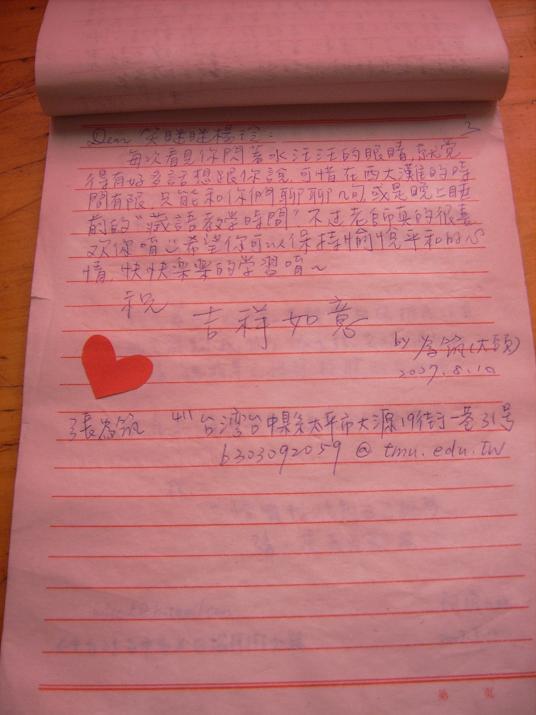 Dear 笑眯眯樣珍:
3
每次看見你閃著水汪汪的眼睛,就覺
得有好多話想跟你說,可惜在西大灘的時
間有限,只能和你們聊聊幾句,或是晚上睡
前的"藏語教學時間"不过老師真的很喜
欢你唷~希望你可以保持愉悅平和的心
情,快快樂樂的学習唷~
祝
吉祥如意
by (大頭)
2007.8.10
張 411 台灣台中縣太平市大源19街一巷31号
b303092059@tmu.edu.tw
第 頁